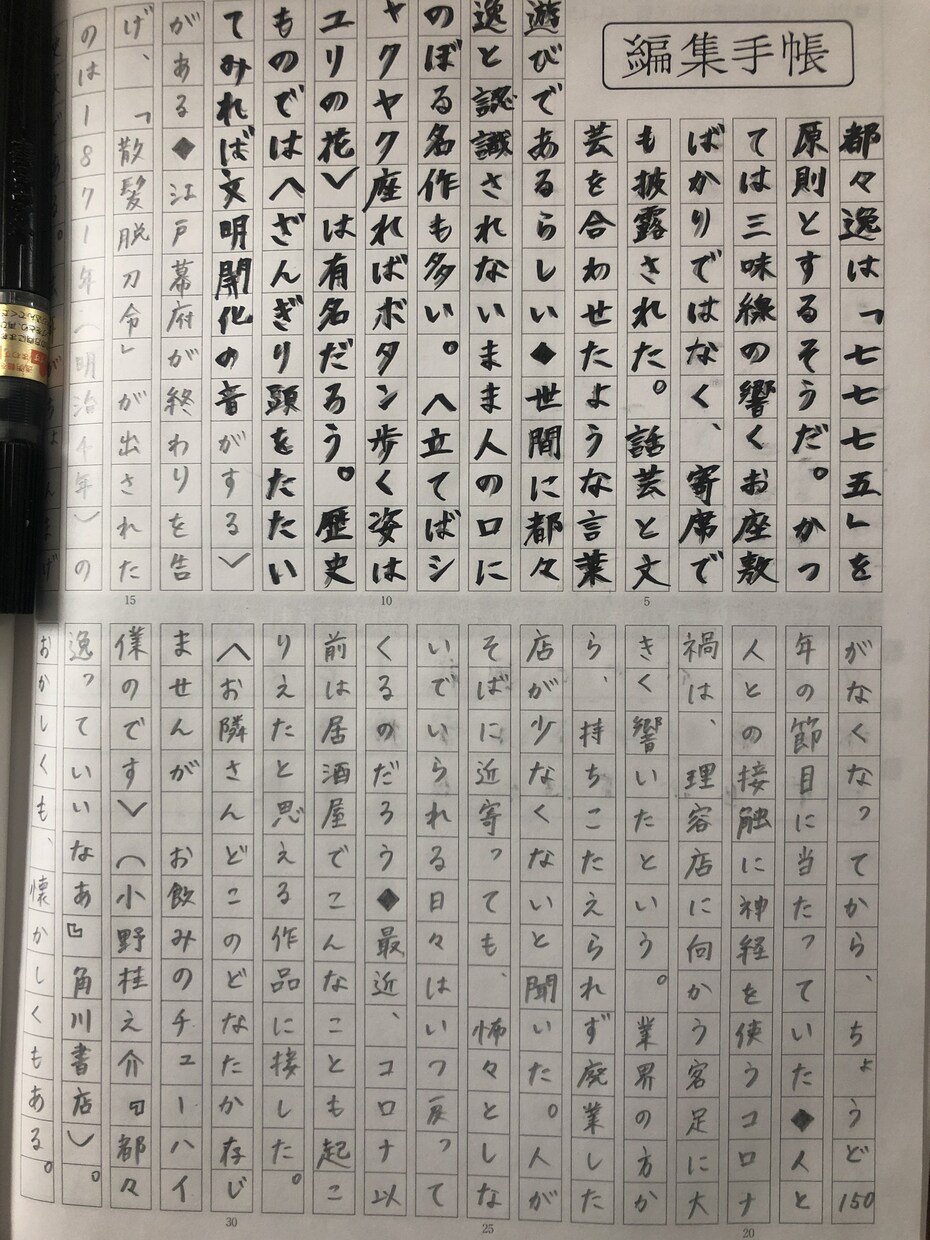 編集手帳
都々逸は「七七七五」を
原則とするそうだ。かつ
ては三味線の響くお座敷
ばかりではなく、寄席で
も披露された。話芸と文
芸を合わせたような言葉
遊びであるらしい◆世間に都々
逸と認識されないまま人の口に
のぼる名作も多い。〈立てばシ
ャクヤク座ればボタン歩く姿は
ユリの花〉は有名だろう。歴史
ものでは〈ざんぎり頭をたたい
てみれば文明開化の音がする〉
がある◆江戸幕府が終わりを告
げ、「散髪脱刀令」が出された
のは1871年(明治4年)の
がなくなってから、ちょうど150
年の節目に当たっていた◆人と
人との接触に神経を使うコロナ
禍は、理容店に向かう客足に大
きく響いたという。業界の方か
ら、持ちこたえられず廃業した
店が少なくないと聞いた。人が
そばに近寄っても、怖々としな
いでいられる日々はいつ戻って
くるのだろう◆最近、コロナ以
前は居酒屋でこんなことも起こ
りえたと思える作品に接した。
〈お隣さんどこのどなたか存じ
ませんが お飲みのチューハイ
僕のです〉(小野桂之介『都々
逸っていいなあ』角川書店)。
おかしくも、懐かしくもある。
15
10
5
30
25
20